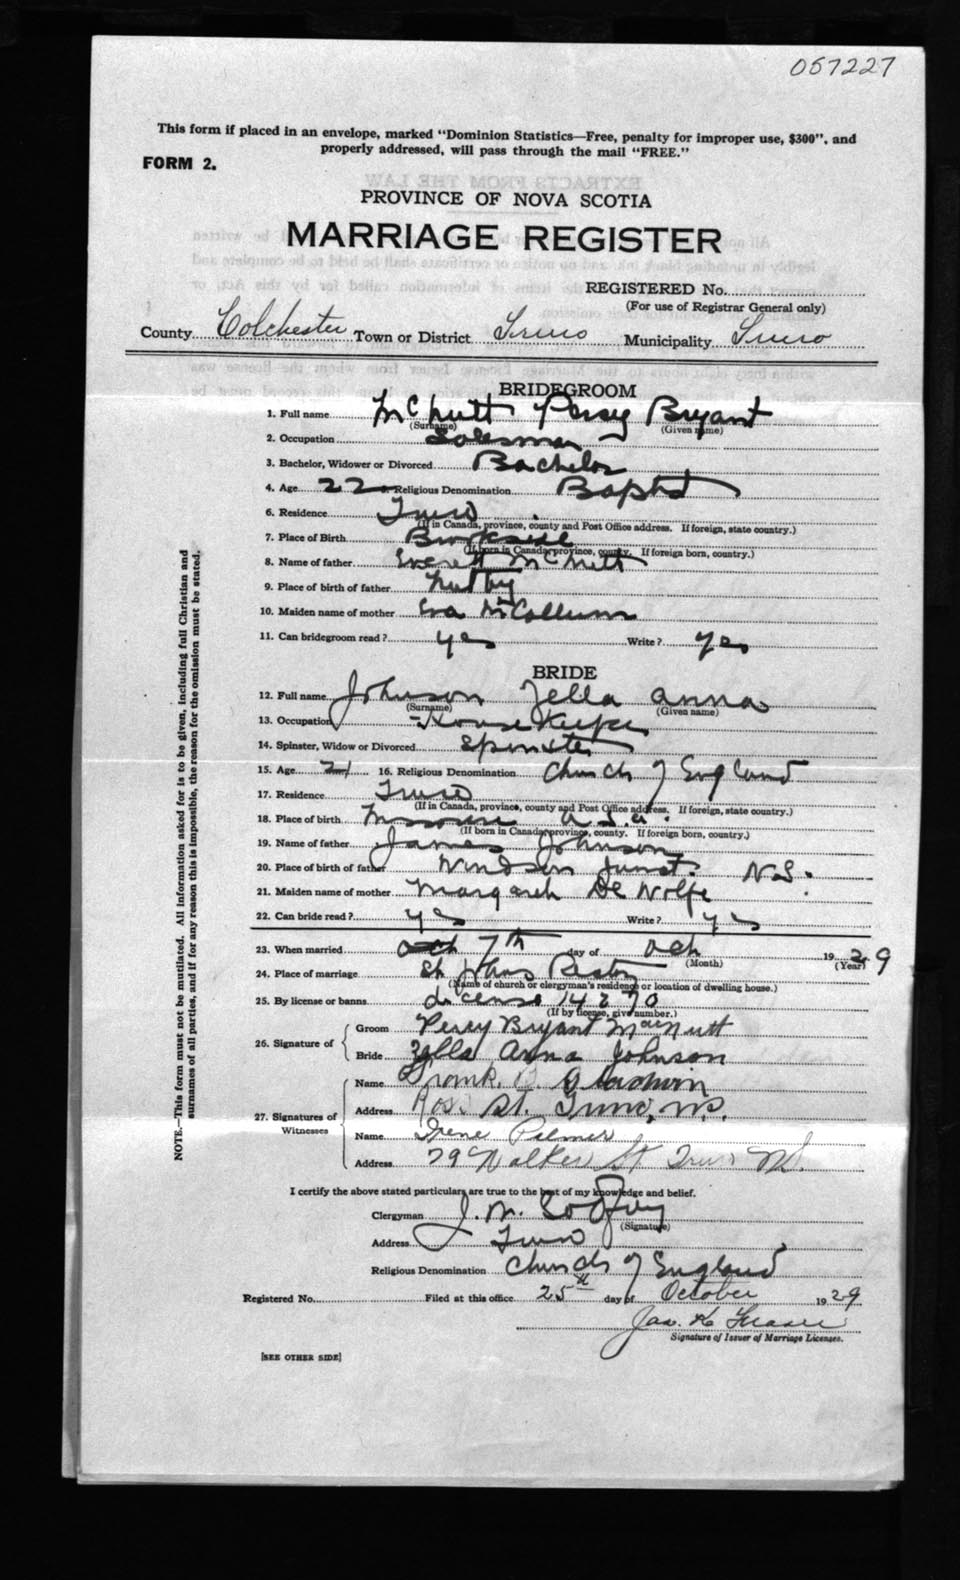 057227
This form if placed in an envelope, marked "Dominion Statistics—Free, penalty for improper use, $300", and
properly addressed, will pass through the mail "FREE."
FORM 2.
PROVINCE OF NOVA SCOTIA
MARRIAGE REGISTER
REGISTERED No.
(For use of Registrar General only)
County Colchester Town or District Truro Municipality Truro
BRIDEGROOM
1. Full name McNutt Percy Bryant
(Surname) (Given name)
2. Occupation Salesman
3. Bachelor, Widower or Divorced Bachelor
4. Age 22 Religious Denomination Baptist
6. Residence Truro
(If in Canada, province, county and Post Office address. If foreign, state country.)
7. Place of Birth Brookside
(If born in Canada province, county. If foreign born, country.)
8. Name of father Everett McNutt
9. Place of birth of father Nutby
10. Maiden name of mother Eva McCollum
11. Can bridegroom read? yes Write? yes
BRIDE
12. Full name Johnson Zella Anna
(Surname) (Given name)
13. Occupation Housekeeper
14. Spinster, Widow or Divorced Spinster
15. Age 21 16. Religious Denomination Church of England
17. Residence Truro
(If in Canada, province, county and Post Office address. If foreign, state country.)
18. Place of birth Missouri U.S.A.
(If born in Canada province, county. If foreign born, country.)
19. Name of father James Johnson
20. Place of birth of father Windsor Junct. N.S.
21. Maiden name of mother Margaret DeWolfe
22. Can bride read? yes Write? yes
23. When married 7th day of Oct 1929
(Month) (Year)
24. Place of marriage St Johns Rectory
(Name of church or clergyman's residence or location of dwelling house.)
25. By license or banns License 14270
(If by license, give number.)
26. Signature of
Groom Percy Bryant MacNutt
Bride Zella Anna Johnson
27. Signatures of Witnesses
Name Frank B. Gladwin
Address St. Truro, N.S.
Name Irene Palmer
Address 79 Walker St Truro N.S.
I certify the above stated particulars are true to the best of my knowledge and belief.
Clergyman J. W. Godfrey
(Signature)
Address Truro
Religious Denomination Church of England
Registered No. Filed at this office 25th day of October 1929
Jas. K Fraser
Signature of Issuer of Marriage Licenses.
[SEE OTHER SIDE]
NOTE.—This form must not be mutilated. All information asked for is to be given, including full Christian and
surnames of all parties, and if for any reason this is impossible, the reason for the omission must be stated.